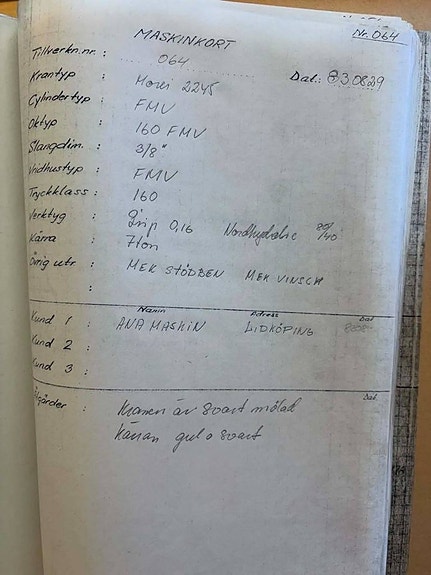 MASKINKORT
Nr. 064
Tillverkn.nr. : 064
Krantyp : 2245 Dat.: 830829
Cylindertyp : FMV
Oktyp : 160 FMV
Slangdim. : 3/8"
Vridhustyp : FMV
Tryckklass : 160
Verktyg : Grip 0,16 Nordhydraulic 80/40
Kärra : 7ton
Övrig utr. : MEK STÖDBEN MEK VINSCH
:
Namn Adress Dat
Kund 1 : ANA MASKIN LIDKÖPING
Kund 2 :
Kund 3 :
Åtgärder : Dat.
Kranen är svart målad
Kärran gul o svart